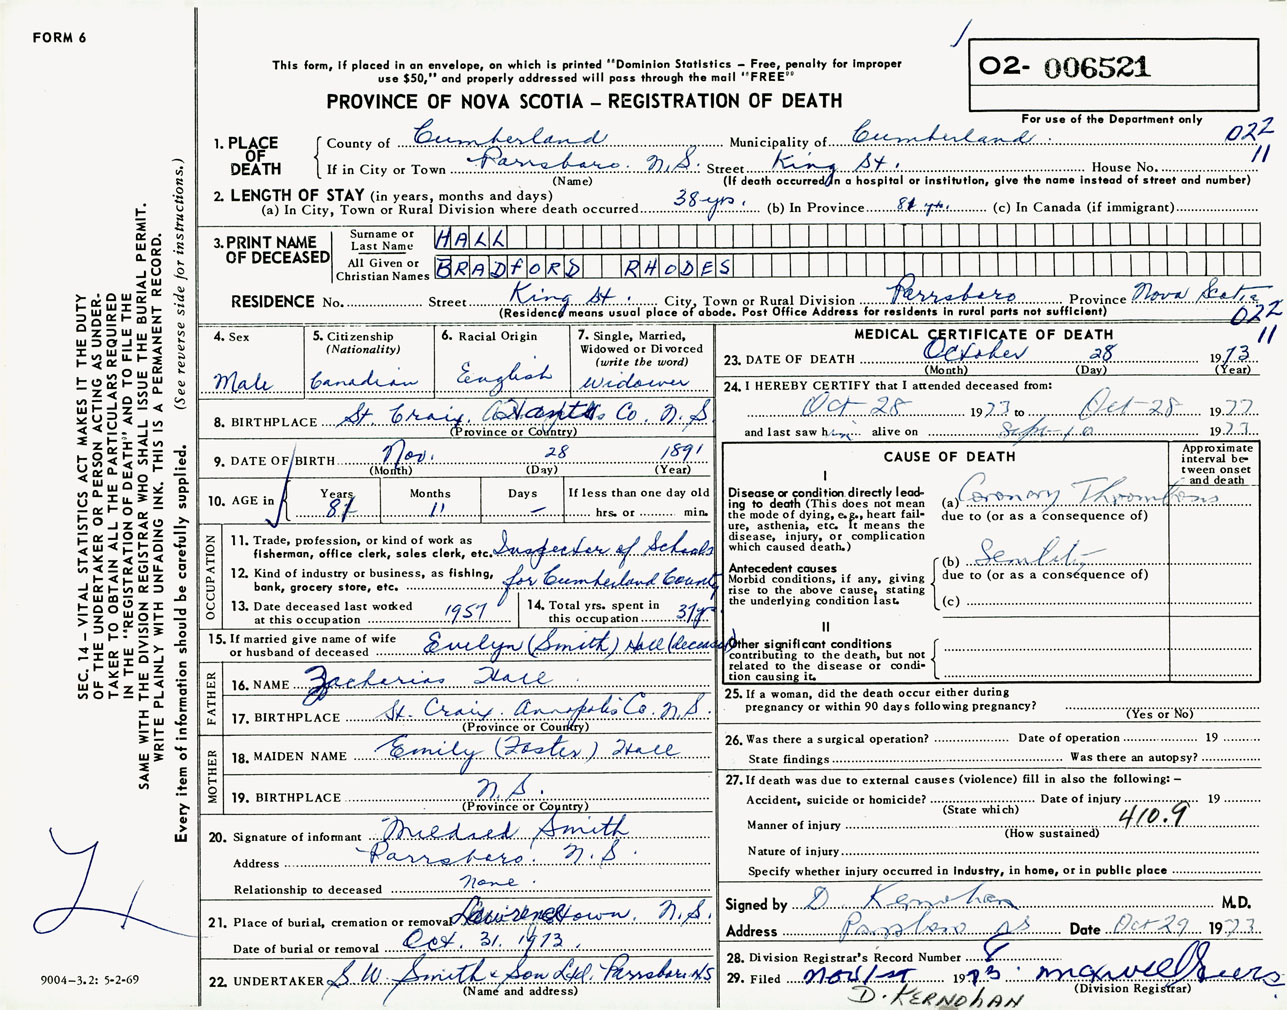 FORM 6
This form, if placed in an envelope, on which is printed "Dominion Statistics – Free, penalty for improper
use $50," and properly addressed will pass through the mail "FREE"
PROVINCE OF NOVA SCOTIA – REGISTRATION OF DEATH
02- 006521
For use of the Department only
022
11
1. PLACE OF DEATH
County of Cumberland Municipality of Cumberland
If in City or Town Parrsboro. N.S. Street King St. House No.
(Name) (If death occurred in a hospital or institution, give the name instead of street and number)
2. LENGTH OF STAY (in years, months and days)
(a) In City, Town or Rural Division where death occurred 38 yrs. (b) In Province 81 yrs. (c) In Canada (if immigrant)
3. PRINT NAME OF DECEASED
Surname or Last Name HALL
All Given or Christian Names BRADFORD RHODES
RESIDENCE No. Street King St. City, Town or Rural Division Parrsboro Province Nova Scotia
(Residence means usual place of abode. Post Office Address for residents in rural parts not sufficient)
022
11
4. Sex
Male
5. Citizenship
(Nationality)
Canadian
6. Racial Origin
English
7. Single, Married,
Widowed or Divorced
(write the word)
Widower
8. BIRTHPLACE St. Croix, Hants Co. N.S.
(Province or Country)
9. DATE OF BIRTH Nov. 28 1891
(Month) (Day) (Year)
10. AGE in
Years 81
Months 11
Days –
If less than one day old
hrs. or min.
OCCUPATION
11. Trade, profession, or kind of work as
fisherman, office clerk, sales clerk, etc. Inspector of Schools
12. Kind of industry or business, as fishing,
bank, grocery store, etc. for Cumberland County
13. Date deceased last worked
at this occupation 1957
14. Total yrs. spent in
this occupation 37 yrs
15. If married give name of wife
or husband of deceased Evelyn (Smith) Hall (deceased)
FATHER
16. NAME Zacharias Hall
17. BIRTHPLACE St. Croix, Annapolis Co. N.S.
(Province or Country)
MOTHER
18. MAIDEN NAME Emily (Foster) Hall
19. BIRTHPLACE N.S.
(Province or Country)
20. Signature of informant Mildred Smith
Address Parrsboro. N.S.
Relationship to deceased none.
21. Place of burial, cremation or removal Lawrencetown, N.S.
Date of burial or removal Oct. 31, 1973.
22. UNDERTAKER S.W. Smith & Son Ltd. Parrsboro NS
(Name and address)
MEDICAL CERTIFICATE OF DEATH
23. DATE OF DEATH October 28 1973
(Month) (Day) (Year)
24. I HEREBY CERTIFY that I attended deceased from:
Oct 28 1973 to Oct 28 1973
and last saw him alive on Sept 10 1973
CAUSE OF DEATH
Approximate
interval be-
tween onset
and death
I
Disease or condition directly lead-
ing to death (This does not mean
the mode of dying, e.g., heart fail-
ure, asthenia, etc. It means the
disease, injury, or complication
which caused death.)
(a) Coronary Thrombosis
due to (or as a consequence of)
Antecedent causes
Morbid conditions, if any, giving
rise to the above cause, stating
the underlying condition last.
(b) Senility
due to (or as a consequence of)
(c)
II
Other significant conditions
contributing to the death, but not
related to the disease or condi-
tion causing it.
25. If a woman, did the death occur either during
pregnancy or within 90 days following pregnancy?
(Yes or No)
26. Was there a surgical operation? Date of operation 19
State findings Was there an autopsy?
27. If death was due to external causes (violence) fill in also the following: –
Accident, suicide or homicide? Date of injury 19
(State which)
410.9
Manner of injury
(How sustained)
Nature of injury
Specify whether injury occurred in industry, in home, or in public place
Signed by D Kernohan M.D.
Address Parrsboro NS Date Oct 29 1973
28. Division Registrar's Record Number 8
29. Filed Nov 1st 1973
(Division Registrar)
D. KERNOHAN
SEC. 14 – VITAL STATISTICS ACT MAKES IT THE DUTY
OF THE UNDERTAKER OR PERSON ACTING AS UNDER-
TAKER TO OBTAIN ALL THE PARTICULARS REQUIRED
IN THE "REGISTRATION OF DEATH" AND TO FILE THE
SAME WITH THE DIVISION REGISTRAR WHO SHALL ISSUE THE BURIAL PERMIT.
WRITE PLAINLY WITH UNFADING INK. THIS IS A PERMANENT RECORD.
Every item of information should be carefully supplied. (See reverse side for instructions.)
9004-3.2: 5-2-69